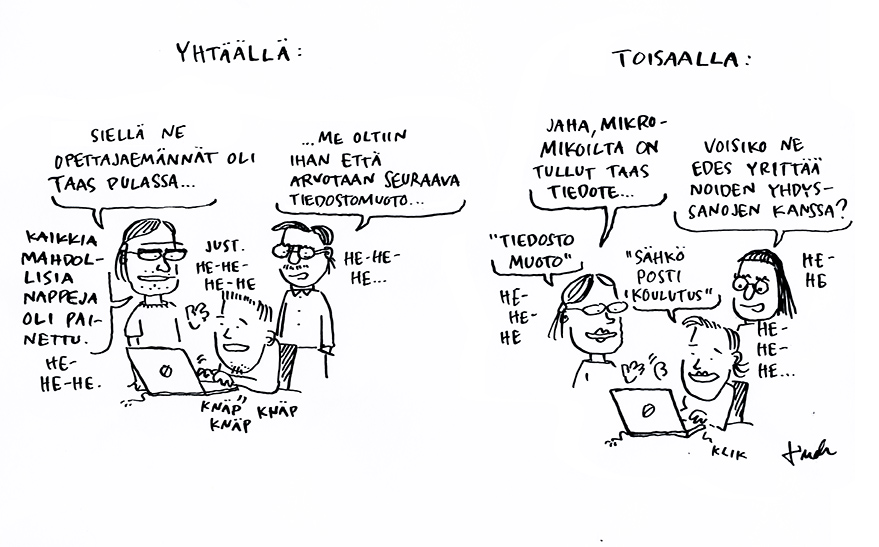 YHTÄÄLLÄ:
SIELLÄ NE
OPETTAJAEMÄNNÄT OLI
TAAS PULASSA...
...ME OLTIIN
IHAN ETTÄ
ARVOTAAN SEURAAVA
TIEDOSTOMUOTO...
KAIKKIA
MAHDOL-
LISIA
NAPPEJA
OLI PAI-
NETTU.
HE-
HE-HE.
JUST.
HE-HE-
HE-HE
HE-HE-
HE...
KNÄP KNÄP
KNÄP
TOISAALLA:
JAHA, MIKRO-
MIKOILTA ON
TULLUT TAAS
TIEDOTE...
VOISIKO NE
EDES YRITTÄÄ
NOIDEN YHDYS-
SANOJEN KANSSA?
"TIEDOSTO
MUOTO"
HE-
HE-
HE
"SÄHKÖ
POSTI
KOULUTUS"
HE-
HE
HE-
HE-
HE...
KLIK